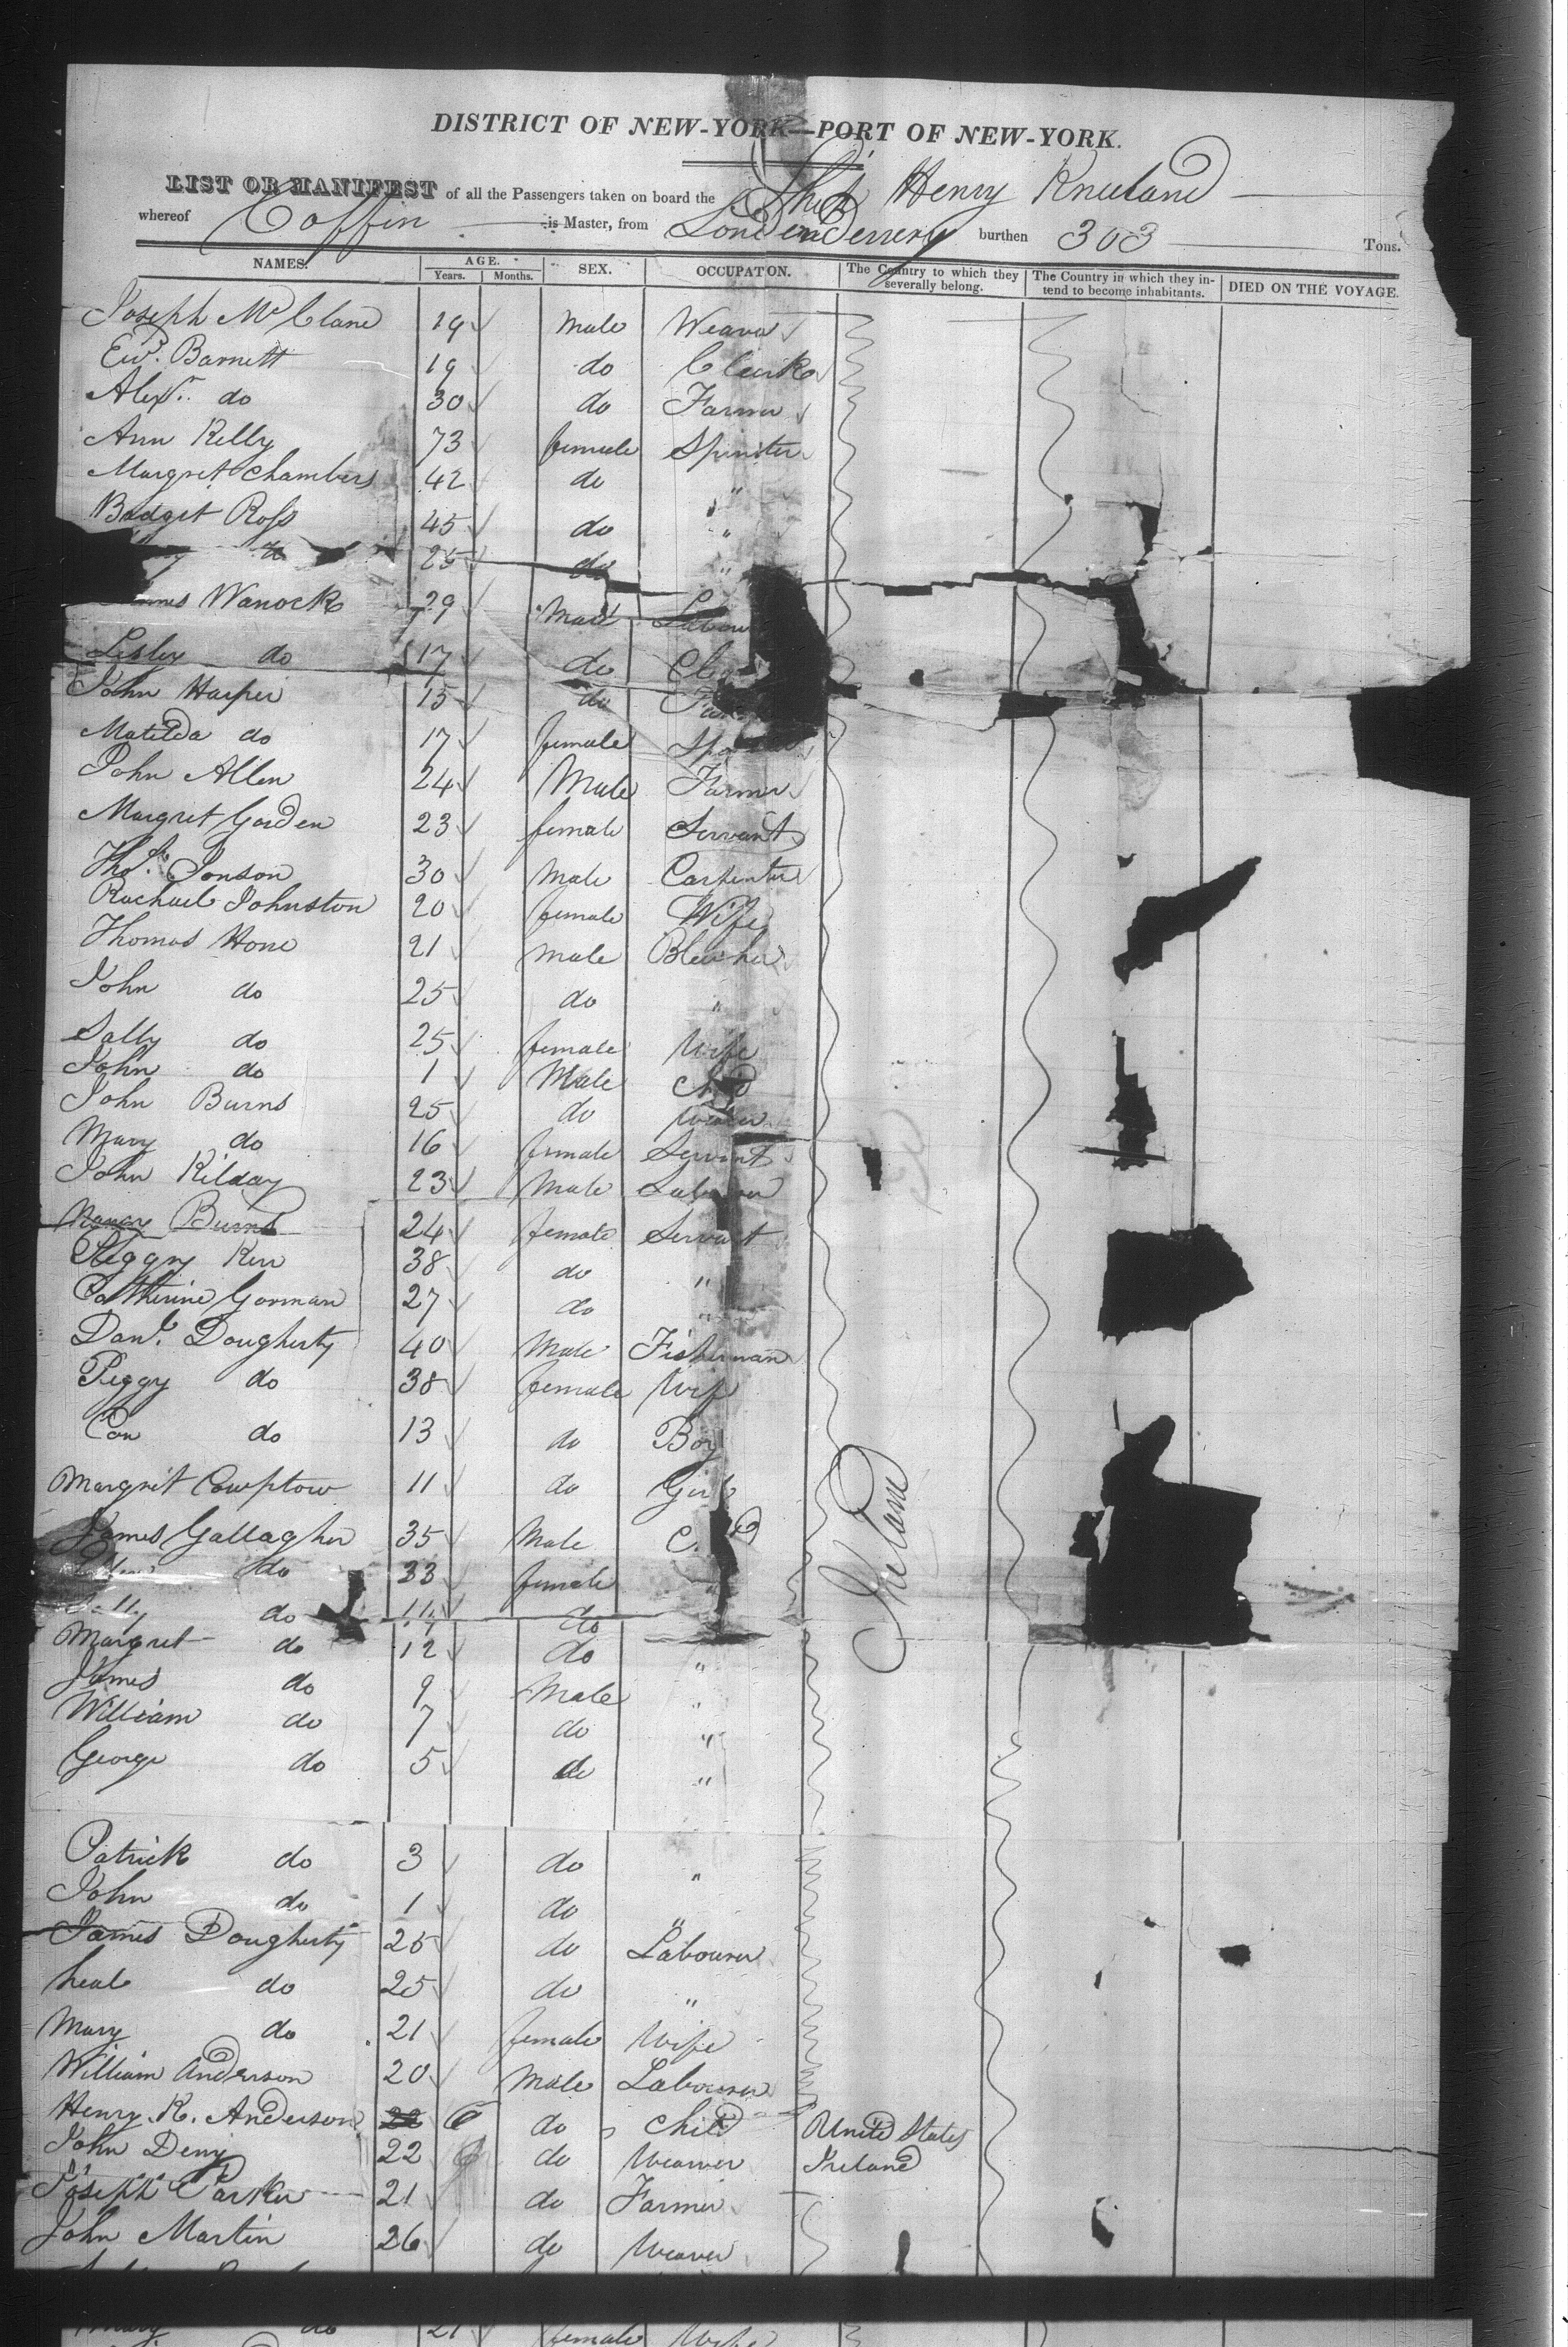 DISTRICT OF NEW-YORK—PORT OF NEW-YORK.
LIST OR MANIFEST of all the Passengers taken on board the Ship Henry Kneeland
whereof Coffin is Master, from Londonderry burthen 303 Tons.
NAMES. AGE. SEX. OCCUPATON. The Country to which they severally belong. The Country in which they intend to become inhabitants. DIED ON THE VOYAGE.
Years. Months.
Joseph McClane 19 male Weaver
Edwd. Barnett 19 do Clerk
Alexr. do 30 do Farmer
Ann Kelly 73 female Spinster
Margret Chambers 42 do "
Bridget Ross 45 do "
do 25 do "
Wanock 29 Male Labour
Lesley do 17 do
John Harper 15 do
Matilda do 17 female
John Allen 24 Male Farmer
Margret Gorden 23 female Servant
Thos. Jonson 30 Male Carpenter
Rachael Johnston 20 female Wife
Thomas Hone 21 male Bleacher
John do 25 do "
Sally do 25 female Wife
John do 1 Male Child
John Burns 25 do Weaver
Mary do 16 female Servant
John Kilday 23 Male Labourer
Nancy Burns 24 female Servant
Peggy Kerr 38 do "
Catherine Gorman 27 do "
Danl. Dougherty 40 Male Fisherman
Peggy do 38 female Wife
Con do 13 do Boy
Margrit 11 do Girl
James Gallagher 35 Male
do 33 female "
do do
Margret do 12 do "
James do 9 Male "
William do 7 do "
George do 5 do "
Patrick do 3 do "
John do 1 do "
James Dougherty 25 do Labourer
Neal do 25 do "
Mary do 21 female Wife
William Anderson 20 Male Labourer
Henry K. Anderson 6 do Child United States
John Deny 22 do Weaver Ireland
Joseph Parker 21 do Farmer
John Martin 26 do Weaver
Ireland
Mary do 21 female Wife